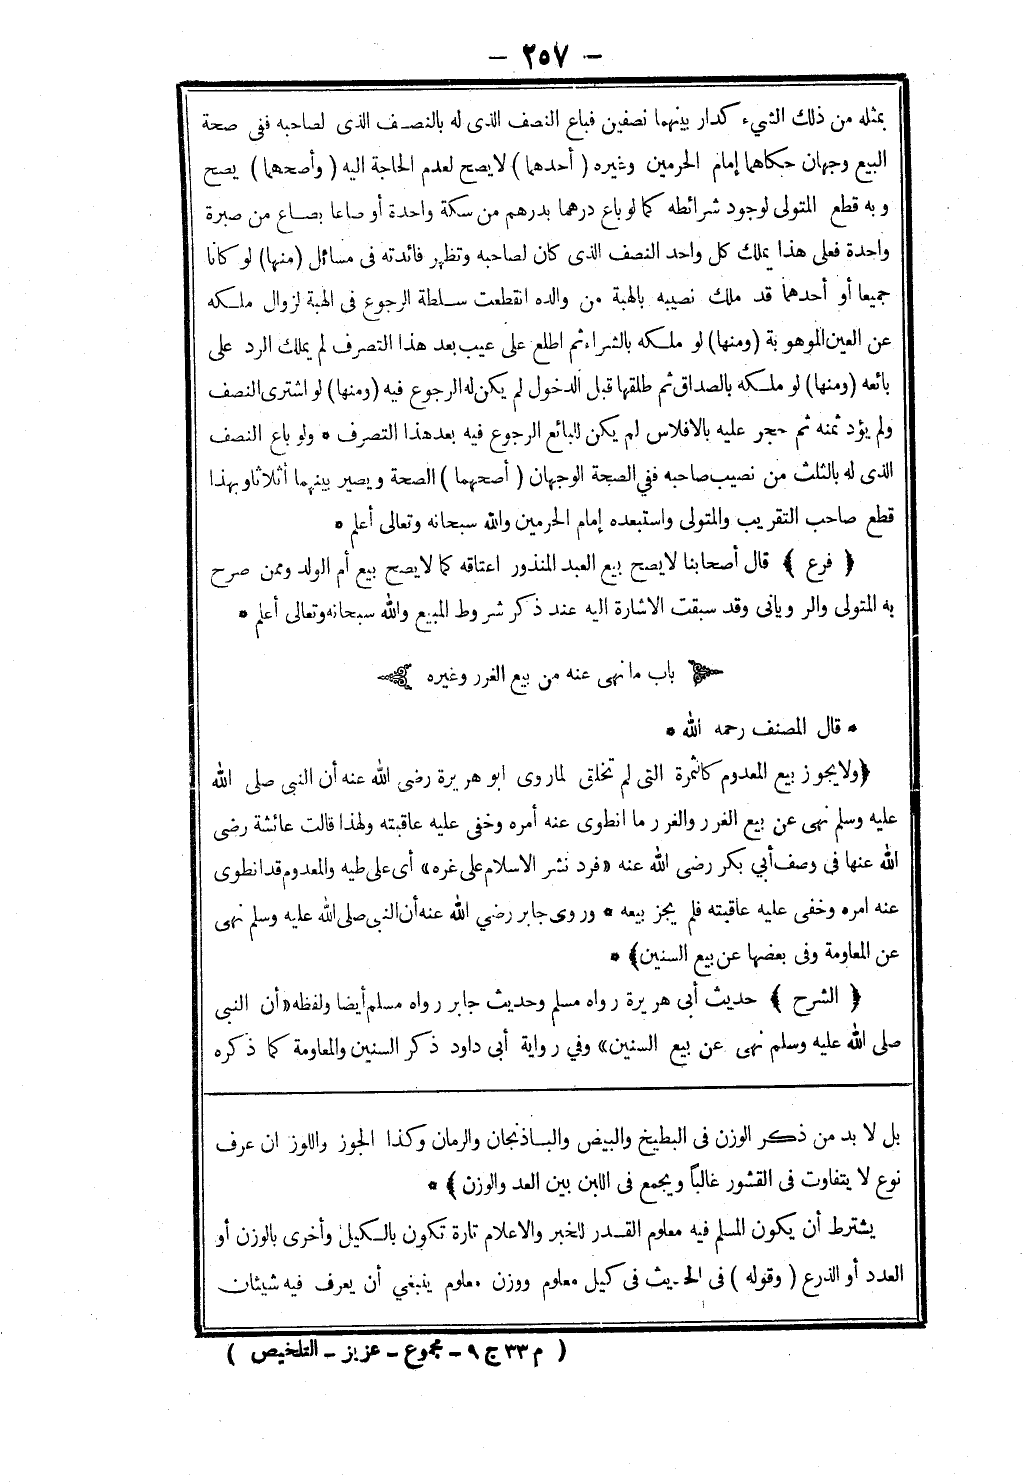 — ٢٥٧ —
بمثله من ذلك الشيء كدار بينهما نصفين فباع النصف الذى له بالنصف الذى لصاحبه ففى صحة
البيع وجهان حكاهما إمام الحرمين وغيره ( أحدهما ) لايصح لعدم الحاجة اليه ( وأصحهما ) يصح
وبه قطع المتولى لوجود شرائطه كما لو باع درهما بدرهم من سكة واحدة أو صاعا بصاع من صبرة
واحدة فعلى هذا يملك كل واحد النصف الذى كان لصاحبه وتظهر فائدته فى مسائل (منها) لو كانا
جميعا أو أحدهما قد ملك نصيبه بالهبة من والده انقطعت سلطة الرجوع فى الهبة لزوال ملكه
عن العين الموهوبة (ومنها) لو ملكه بالشراء ثم اطلع على عيب بعد هذا التصرف لم يملك الرد على
بائعه (ومنها) لو ملكه بالصداق ثم طلقها قبل الدخول لم يكن له الرجوع فيه (ومنها) لو اشترى النصف
ولم يؤد ثمنه ثم حجر عليه بالافلاس لم يكن للبائع الرجوع فيه بعد هذا التصرف * ولو باع النصف
الذى له بالثلث من نصيب صاحبه ففي الصحة الوجهان ( أصحهما ) الصحة ويصير بينهما أثلاثا وبهذا
قطع صاحب التقريب والمتولى واستبعده إمام الحرمين والله سبحانه وتعالى أعلم *
﴿ فرع ﴾ قال أصحابنا لايصح بيع العبد المنذور اعتاقه كما لايصح بيع أم الولد وممن صرح
به المتولى والرويانى وقد سبقت الاشارة اليه عند ذكر شروط المبيع والله سبحانه وتعالى أعلم *
باب مانهى عنه من بيع الغرر وغيره
* قال المصنف رحمه الله *
﴿ولايجوز بيع المعدوم كالثمرة التى لم تخلق لماروى ابو هريرة رضى الله عنه أن النبى صلى الله
عليه وسلم نهى عن بيع الغرر والغرر ما انطوى عنه أمره وخفى عليه عاقبته ولهذا قالت عائشة رضى
الله عنها فى وصف أبي بكر رضى الله عنه «فرد نشر الاسلام على غره» أى على طيه والمعدوم قد انطوى
عنه امره وخفى عليه عاقبته فلم يجز بيعه * وروى جابر رضي الله عنه أن النبى صلى الله عليه وسلم نهى
عن المعاومة وفى بعضها عن بيع السنين﴾ *
﴿ الشرح ﴾ حديث أبى هريرة رواه مسلم وحديث جابر رواه مسلم أيضا ولفظه «أن النبى
صلى الله عليه وسلم نهى عن بيع السنين» وفي رواية أبى داود ذكر السنين والمعاومة كما ذكره
بل لا بد من ذكر الوزن فى البطيخ والبيض والباذنجان والرمان وكذا الجوز واللوز ان عرف
نوع لا يتفاوت فى القشور غالباً ويجمع فى اللبن بين العد والوزن ﴾ *
يشترط أن يكون المسلم فيه معلوم القدر للخبر والاعلام تارة تكون بالكيل وأخرى بالوزن أو
العدد أو الذرع ( وقوله ) فى الحديث فى كيل معلوم ووزن معلوم ينبغي أن يعرف فيه شيئان
( م ٣٣ ج ٩ - مجموع - عزيز - التلخيص )